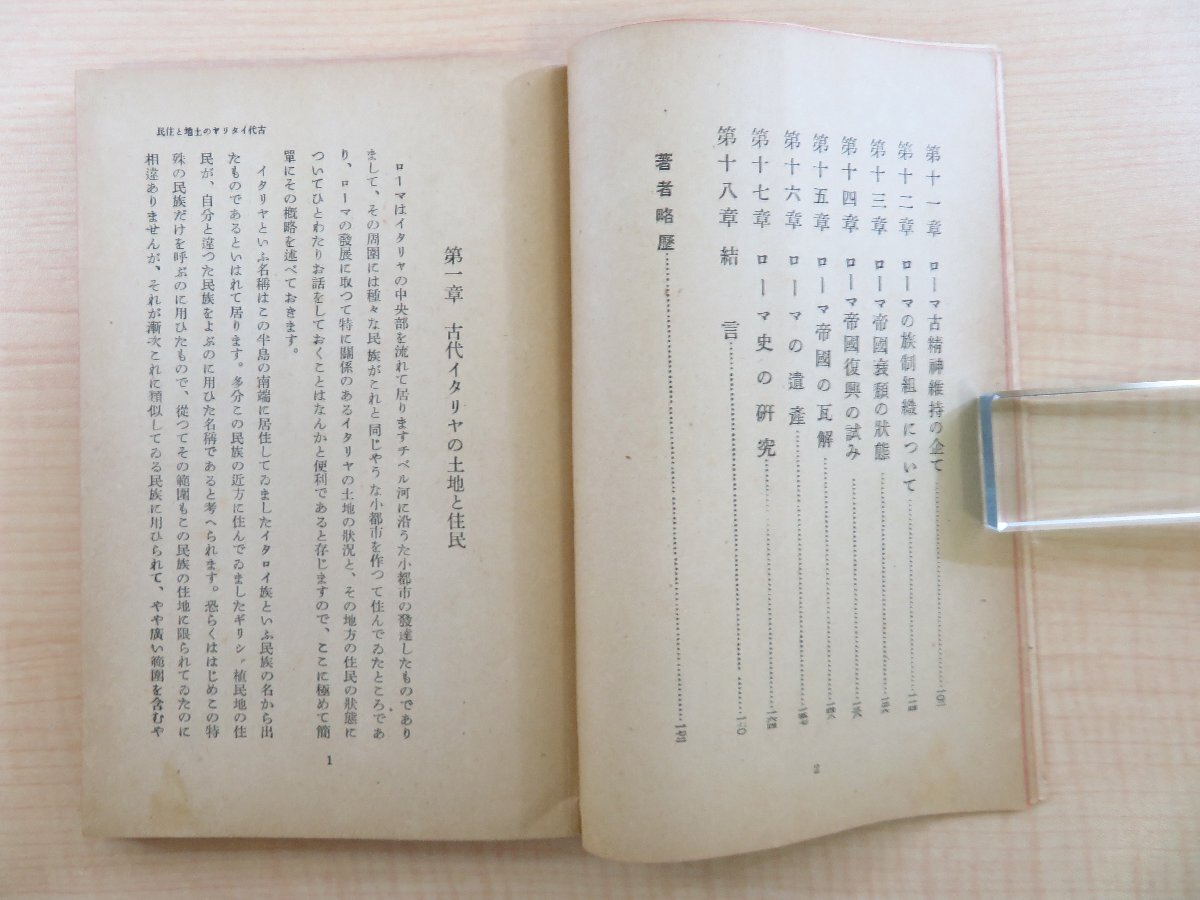 第十一章 ローマ古精神維持の企て
第十二章 ローマの族制組織について
第十三章 ローマ帝國衰頽の狀態
第十四章 ローマ帝國復興の試み
第十五章 ローマ帝國の瓦解
第十六章 ローマの遺產
第十七章 ローマ史の硏究
第十八章 結言
著者略歷
2
古代イタリヤの土地と住民
第一章 古代イタリヤの土地と住民
ローマはイタリヤの中央部を流れて居りますチベル河に沿うた小都市の發達したものであり
まして、その周圍には種々な民族がこれと同じやうな小都市を作つて住んでゐたところであ
り、ローマの發展に取つて特に關係のあるイタリヤの土地の狀況と、その地方の住民の狀態に
ついてひとわたりお話をしておくことはなんかと便利であると存じますので、ここに極めて簡
單にその槪略を述べておきます。
イタリヤといふ名稱はこの半島の南端に居住してゐましたイタロイ族といふ民族の名から出
たものであるといはれて居ります。多分この民族の近方に住んでゐましたギリシァ植民地の住
民が、自分と違つた民族をよぶのに用ひた名稱であると考へられます。恐らくははじめこの特
殊の民族だけを呼ぶのに用ひたもので、從つてその範圍もこの民族の住地に限られてゐたのに
相違ありませんが、それが漸次これに類似してゐる民族に用ひられて、やや廣い範圍を含むや
1